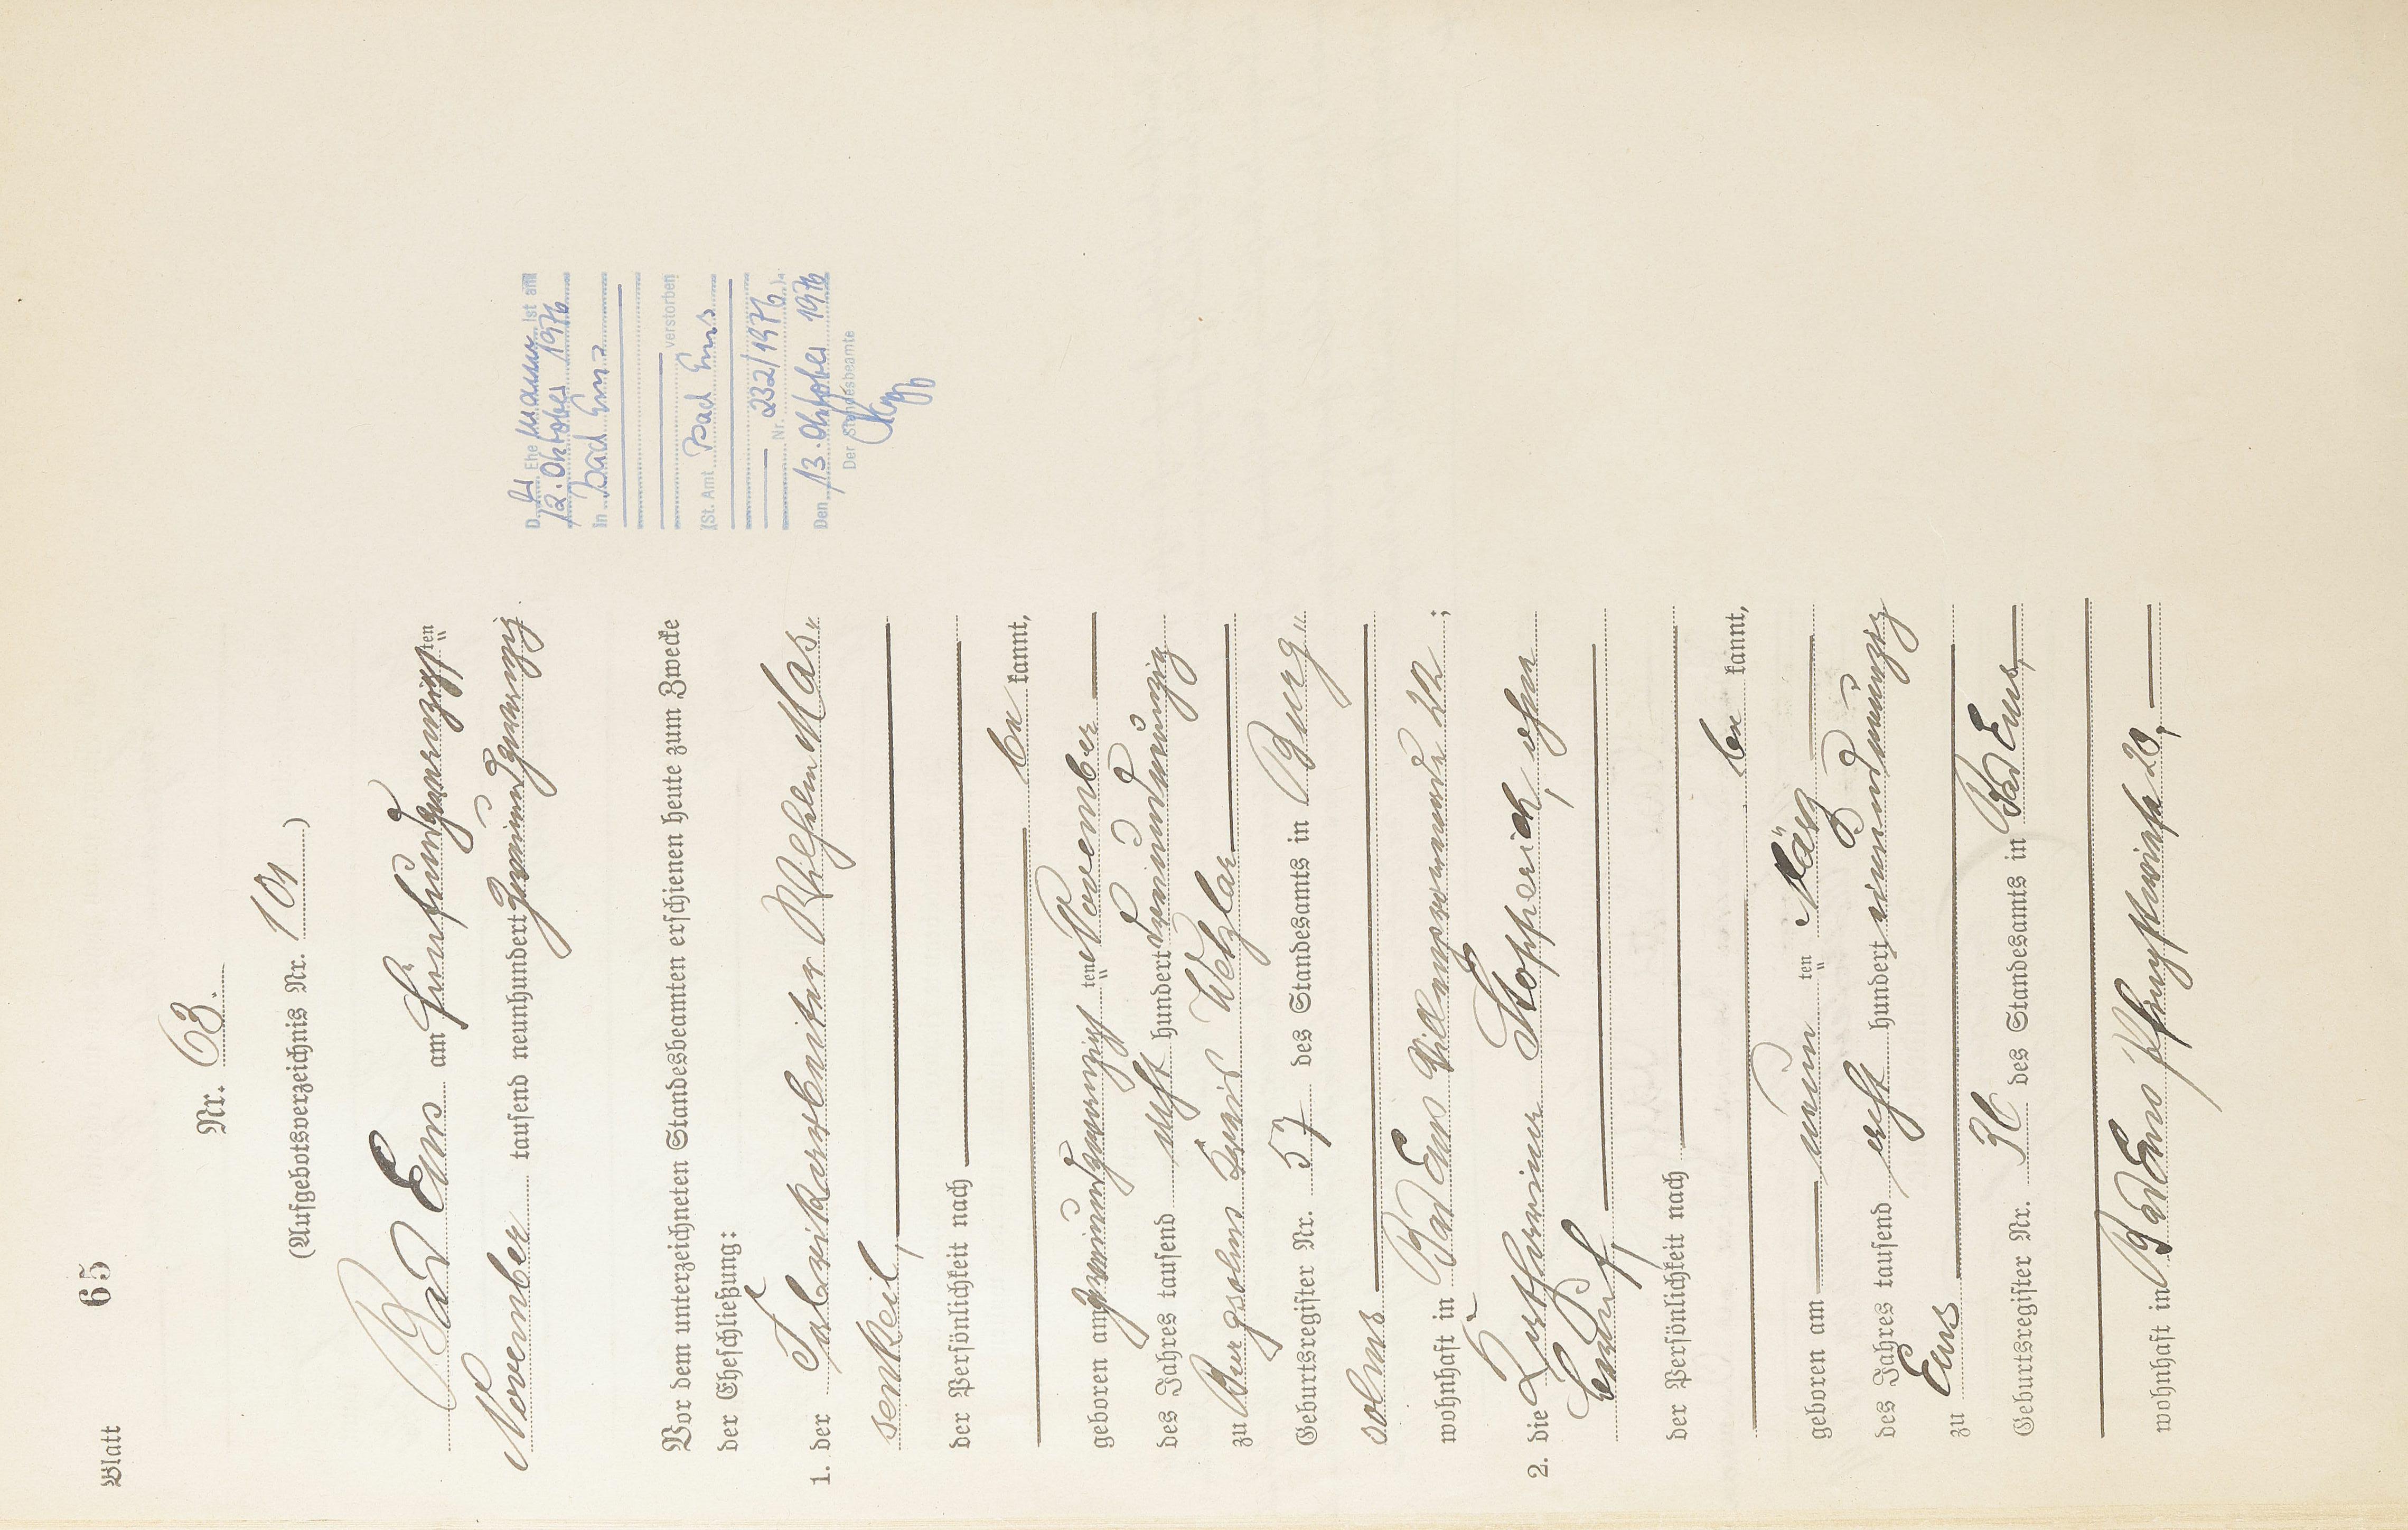 Blatt 65
Nr. 63.
(Aufgebotsverzeichnis Nr. 101)
Bad Ems am fünfundzwanzigsten
November tausend neunhundert zweiundzwanzig
Vor dem unterzeichneten Standesbeamten erschienen heute zum Zwecke
der Eheschließung:
1. der Fabrikarbeiter Wilhelm Mas„
senkeil,
der Persönlichkeit nach
be kannt,
geboren am zweiundzwanzigsten November
des Jahres tausend acht hundert neunundneunzig
zu Burgsolms Kreis Wetzlar
Geburtsregister Nr. 57 des Standesamts in Burg„
solms
wohnhaft in Bad Ems 22;
2. die Katharina Stopperich, ohne
Beruf,
der Persönlichkeit nach
be kannt,
geboren am neun ten März
des Jahres tausend acht hundert neunundneunzig
zu Ems
Geburtsregister Nr. 36 des Standesamts in Bad Ems,
wohnhaft in Bad Ems 20,
D er Ehemann ist am
12. Oktober 1976
in Bad Ems
verstorben
(St. Amt Bad Ems
Nr. 232/1976).
Den 13. Oktober 1976
Der Standesbeamte